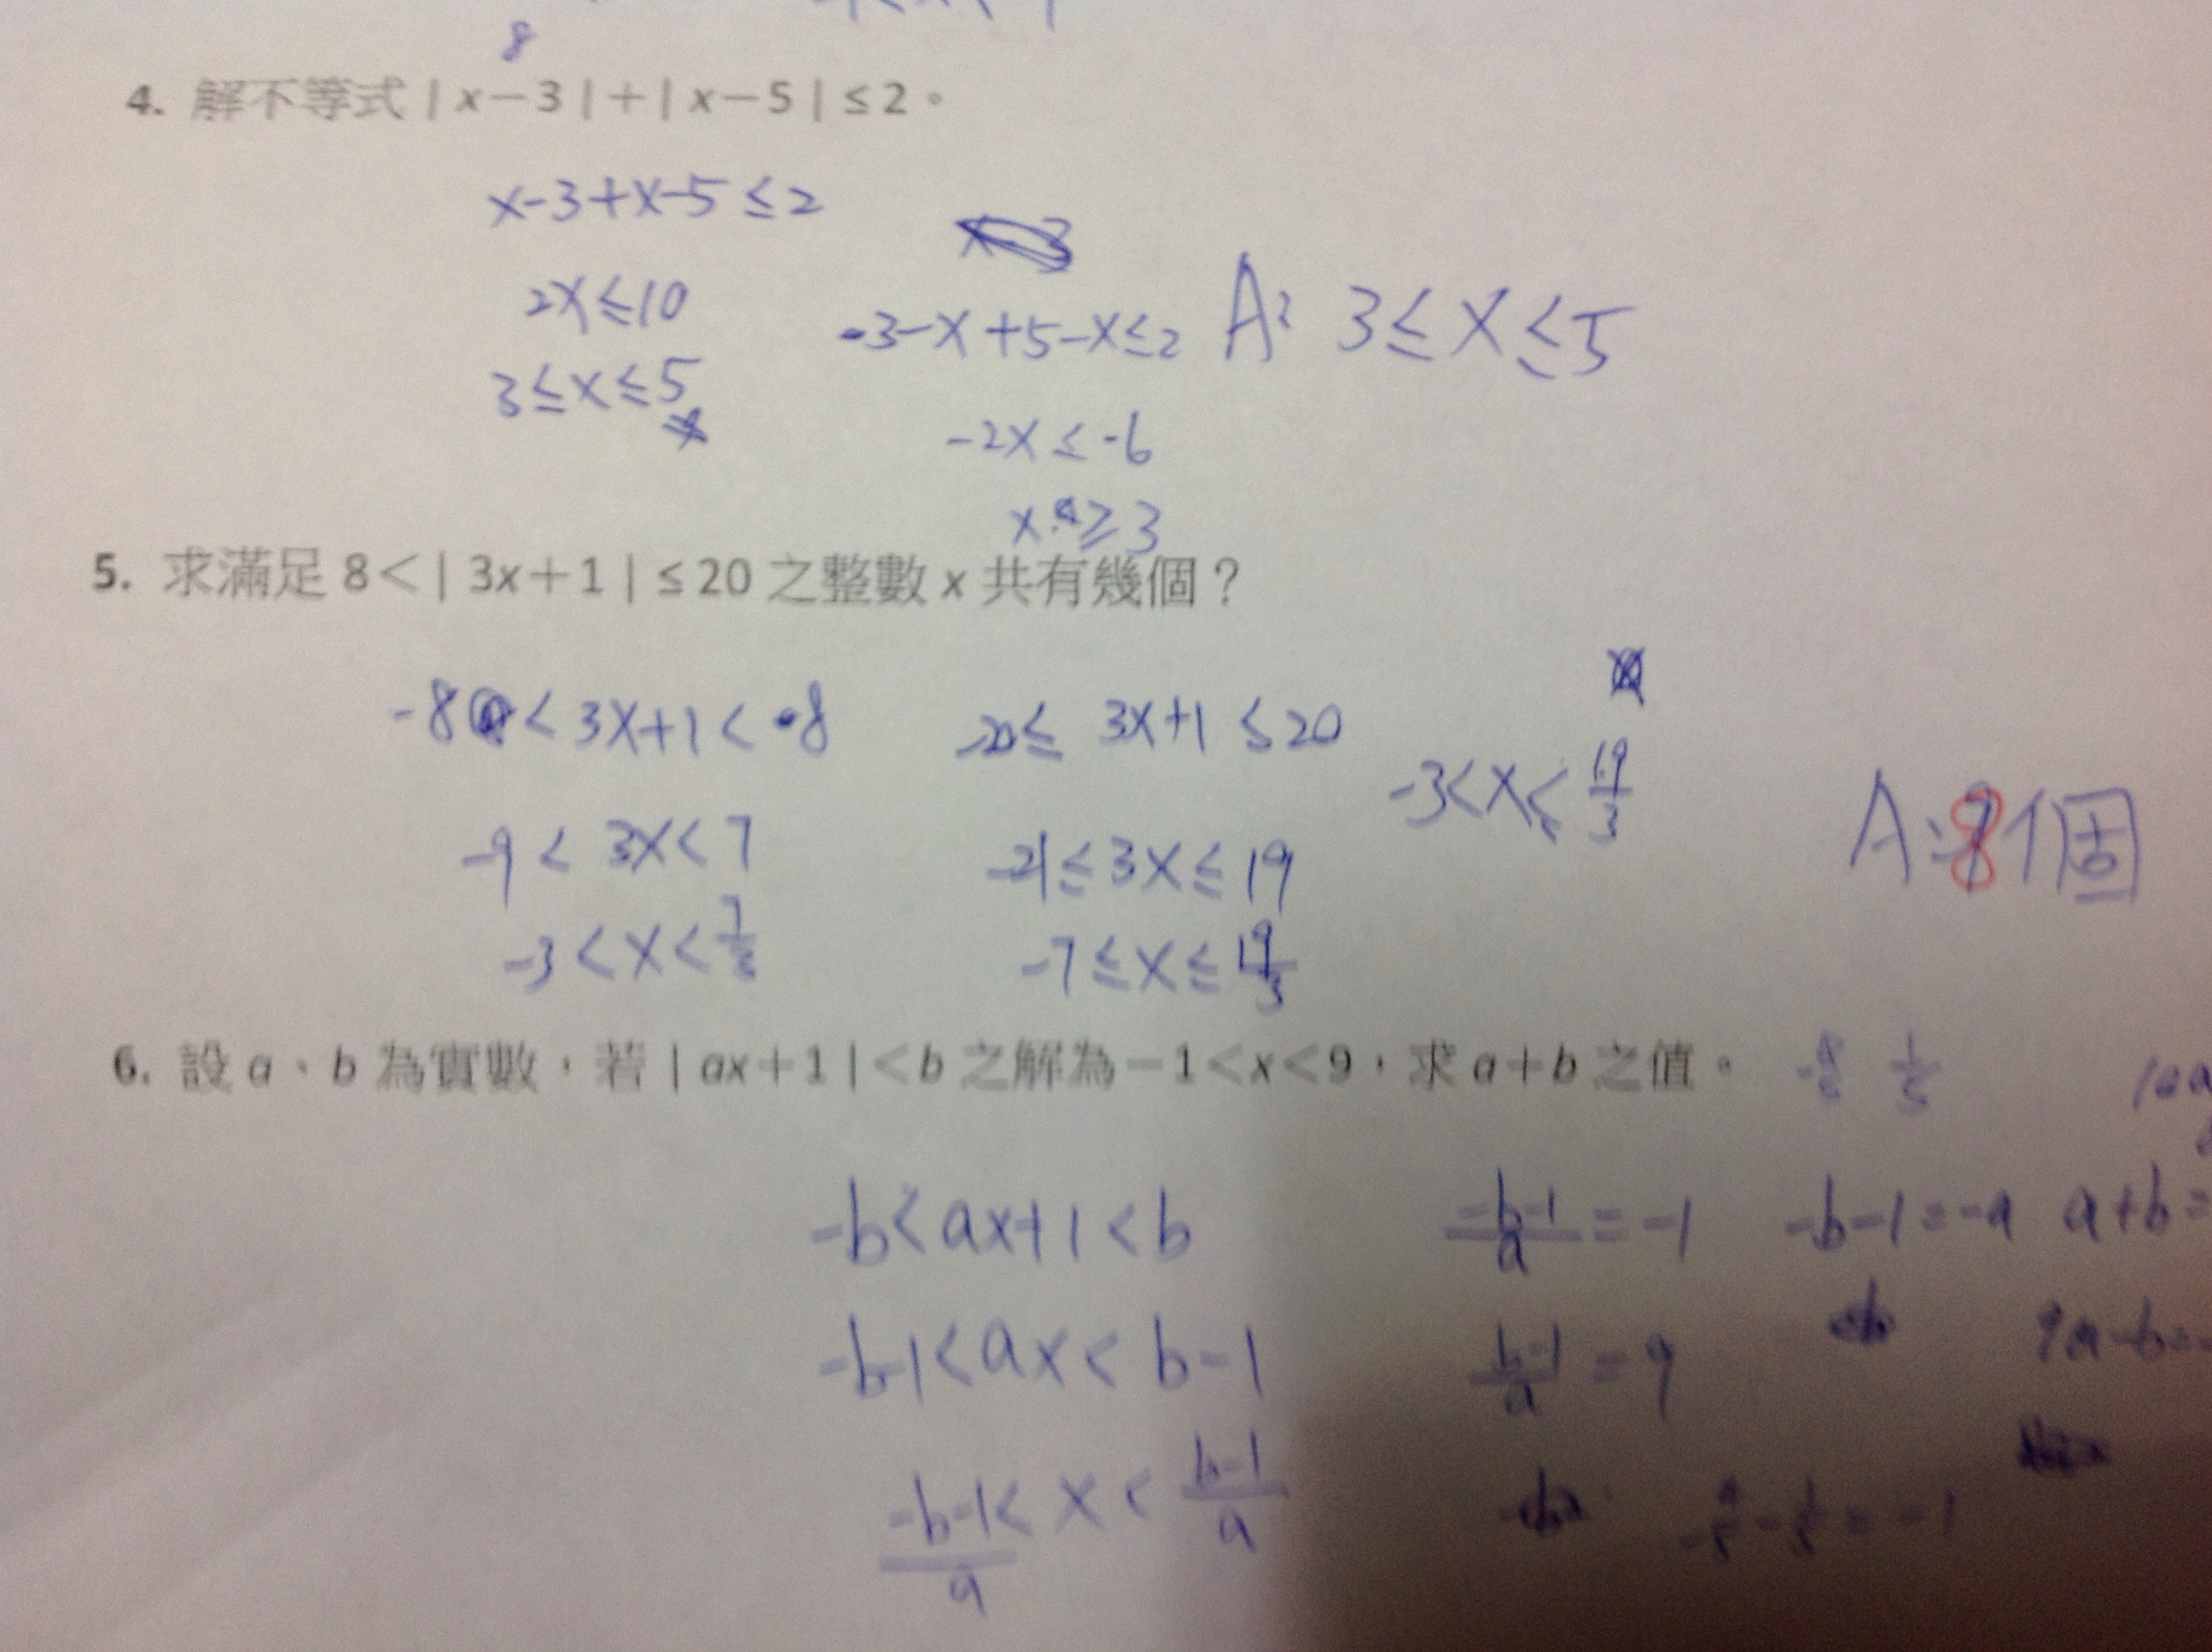 8
4. 解不等式 | x－3 |＋| x－5 | ≤ 2。
x-3+x-5 ≤ 2
2x ≤ 10
3 ≤ x ≤ 5
-3-x+5-x ≤ 2
-2x ≤ -6
x ≥ 3
A: 3 ≤ x ≤ 5
5. 求滿足 8＜| 3x＋1 | ≤ 20 之整數 x 共有幾個？
-8 < 3x+1 < 8
-9 < 3x < 7
-3 < x < 7/3
-20 ≤ 3x+1 ≤ 20
-21 ≤ 3x ≤ 19
-7 ≤ x ≤ 19/3
-3 < x ≤ 19/3
A: 8個
6. 設 a、b 為實數，若 | ax＋1 |＜b 之解為－1＜x＜9，求 a＋b 之值。
-b < ax+1 < b
-b-1 < ax < b-1
-b-1/a < x < b-1/a
-b-1/a = -1
b-1/a = 9
-b-1 = -a
a+b =
9a-b =